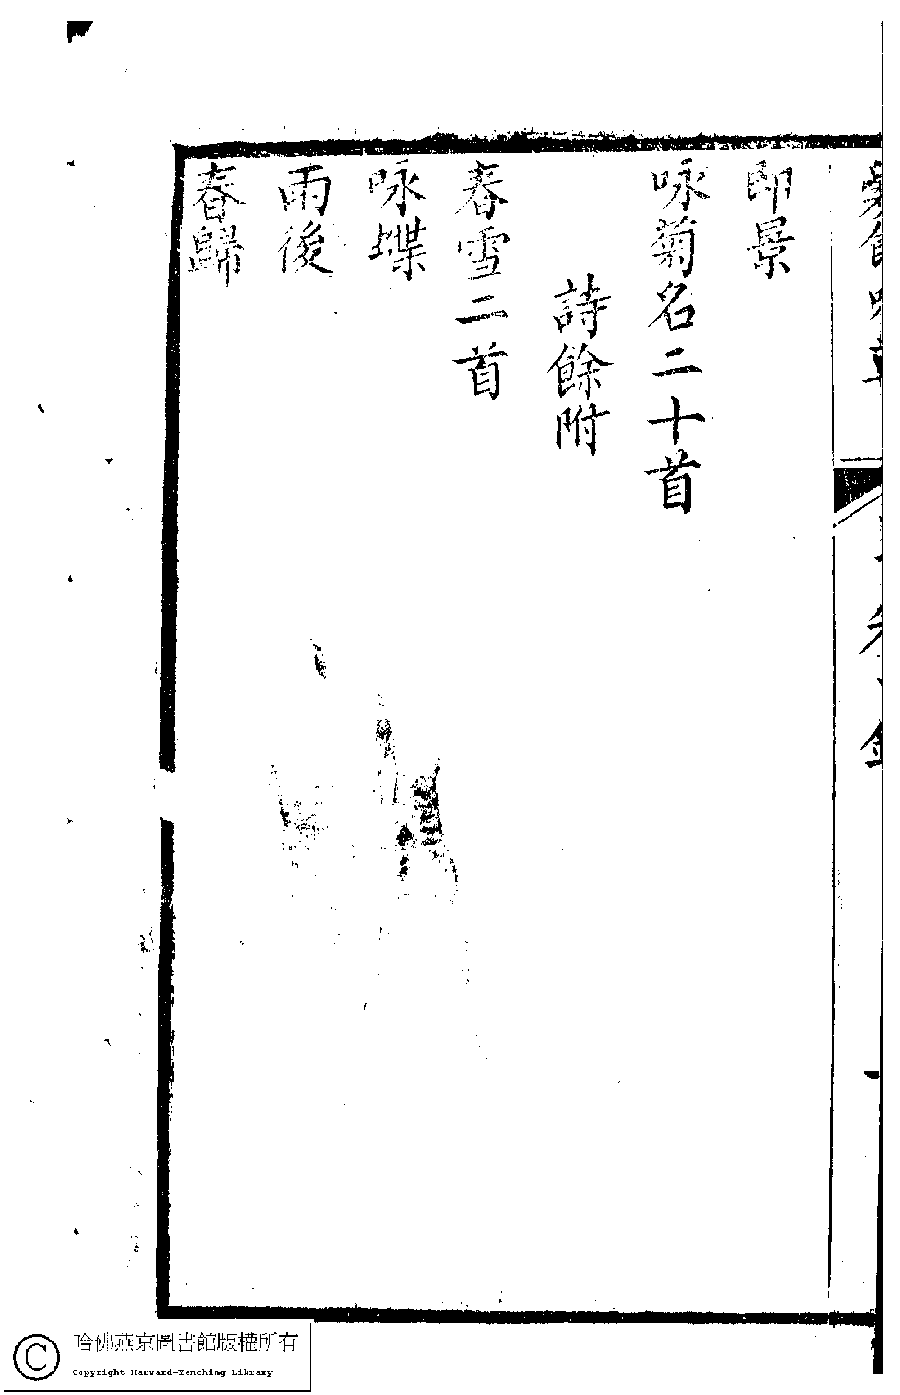 即景
咏菊名二十首
詩餘附
春雪二首
咏蝶
雨後
春歸
哈佛燕京圖書館版權所有
Copyright Harvard-Yenching Library